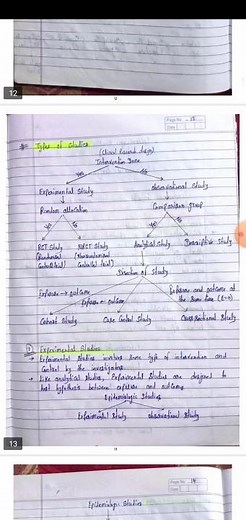 12
Page No. 18
Date
Types of Studies
(Clinical Research design)
Intervention Done
Yes
No
Experimental Study
Observational Study
Random allocation
Comparison group
Yes
No
Yes
No
RCT Study
NRCT Study
Analytical Study
Descriptive Study
Direction of Study
Exposure → outcome
Exposure and outcome at
the same time
Exposure ← outcome
Cohort Study
Case Control Study
Cross-Sectional Study
1 Experimental Studies
→ Experimental Studies involves some type of intervention and
Control by the investigators
→ Like analytical Studies, Experimental Studies are designed to
test hypothesis between exposure and outcome
Epidemiologic Studies
Experimental Study
Observational Study
13
Page No.
Date
Epidemiologic Studies